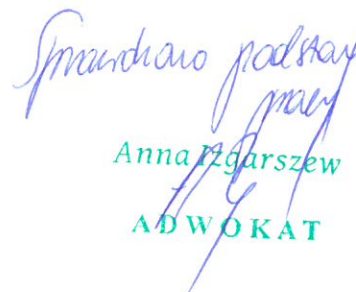 Sprawdzono podstaw
pracy
Anna Izgarszew
ADWOKAT